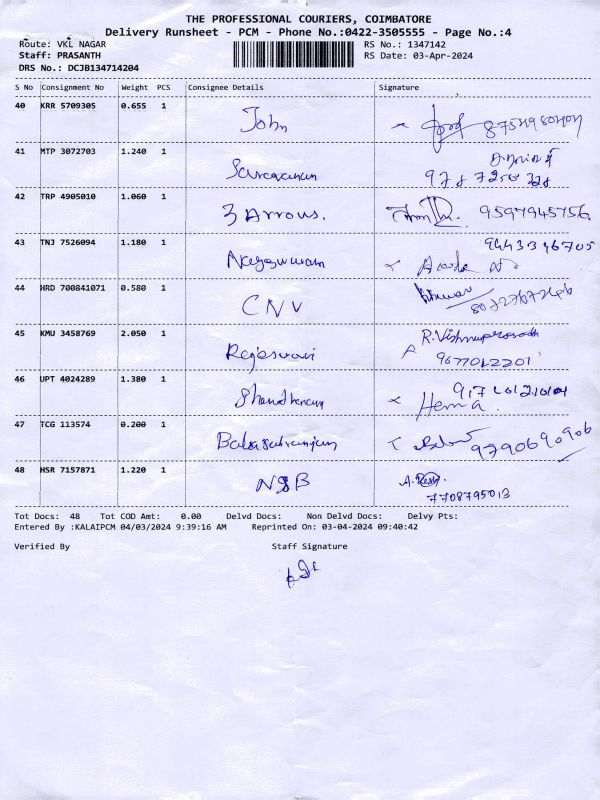 THE PROFESSIONAL COURIERS, COIMBATORE
Delivery Runsheet - PCM - Phone No.:0422-3505555 - Page No.:4
Route: VKL NAGAR RS No.: 1347142
Staff: PRASANTH RS Date: 03-Apr-2024
DRS No.: DCJB134714204
S No Consignment No Weight PCS Consignee Details Signature
40 KRR 5709305 0.655 1 John
41 MTP 3072703 1.240 1
42 TRP 4905010 1.060 1 3 Arrows. 9597945756
43 TNJ 7526094 1.180 1 9443346705
44 HRD 700841071 0.580 1 CNV
45 KMU 3458769 2.050 1 Rajeswari R. Vishnuprasath
9677012201
46 UPT 4024289 1.380 1 Hema
47 TCG 113574 0.200 1 9790690906
48 HSR 7157871 1.220 1 NSB
7708795013
Tot Docs: 48 Tot COD Amt: 0.00 Delvd Docs: Non Delvd Docs: Delvy Pts:
Entered By :KALAIPCM 04/03/2024 9:39:16 AM Reprinted On: 03-04-2024 09:40:42
Verified By Staff Signature